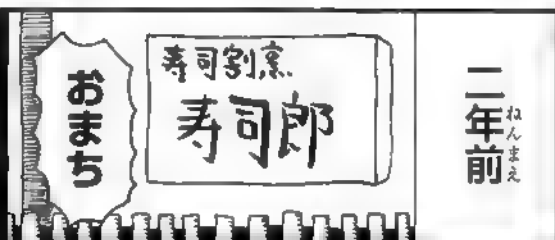 二年前
ねんまえ
寿司割烹
寿司郎
おまち